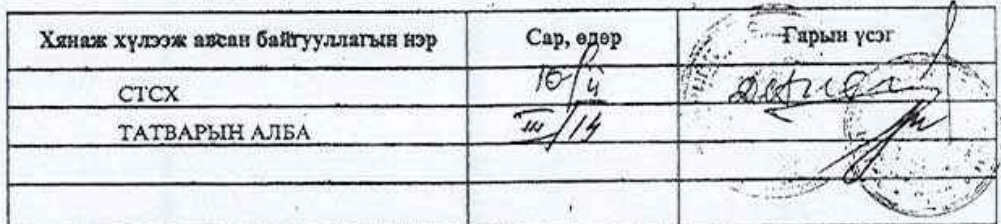 Хянаж хүлээж авсан байгууллагын нэр Сар, өдөр Гарын үсэг
СТСХ
ТАТВАРЫН АЛБА III/14